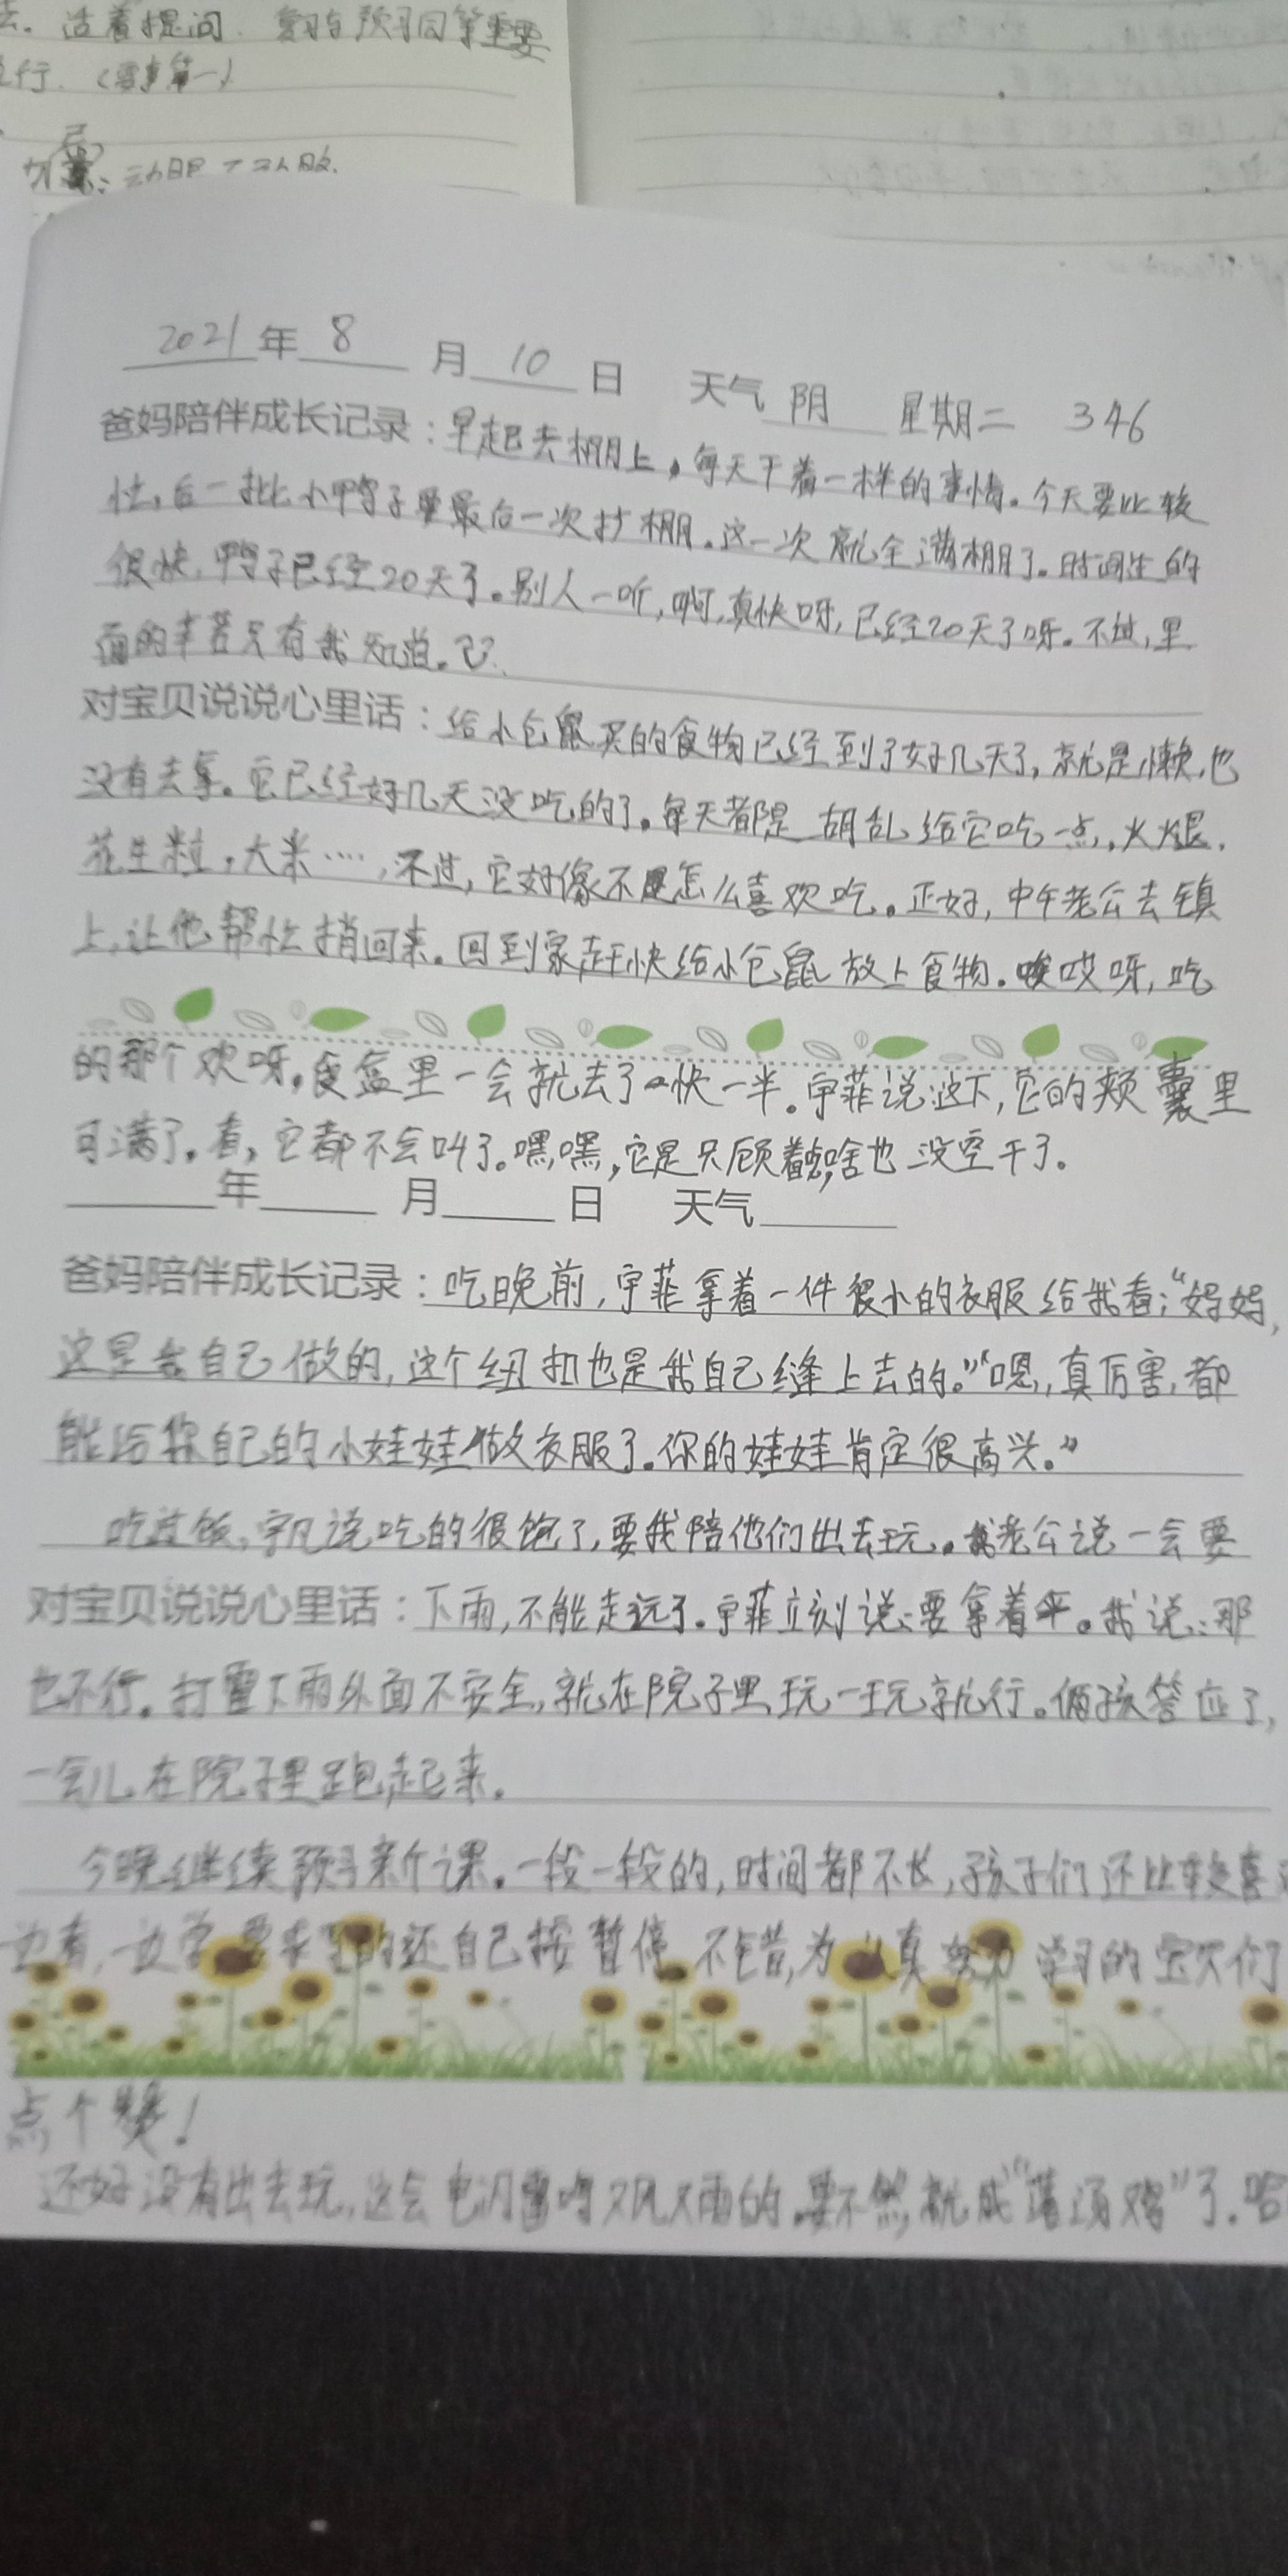 去。活着提问.复习与预习同等重要
行.(需事第一)
2021年8月10日 天气阴 星期二 346
爸妈陪伴成长记录:早起去棚上,每天干着一样的事情。今天要比较
忙,后一批小鸭子要最后一次扩棚。这一次就全满棚了。时间过的
很快,鸭子已经20天了。别人一听,啊,真快呀,已经20天了呀。不过,里
面的辛苦只有我知道。
对宝贝说说心里话:给小仓鼠买的食物已经到了好几天了,就是懒,也
没有去拿。它已经好几天没吃的了。每天都是胡乱给它吃一点,火腿,
花生粒,大米……,不过,它好像不是怎么喜欢吃。正好,中午老公去镇
上,让他帮忙捎回来。回到家,赶快给小仓鼠放上食物。哎呀,吃
的那个欢呀,食盒里一会就去了快一半。宇菲说这下,它的颊囊里
可满了,看,它都不会叫了。嘿嘿,它是只顾着吃,啥也没空干了。
年 月 日 天气
爸妈陪伴成长记录:吃晚前,宇菲拿着一件很小的衣服给我看:“妈妈,
这是我自己做的,这个纽扣也是我自己缝上去的。”“嗯,真厉害,都
能给你自己的小娃娃做衣服了。你的娃娃肯定很高兴。”
吃过饭,宇凡说吃的很饱了,要我陪他们出去玩。老公说一会要
对宝贝说说心里话:下雨,不能走远了。宇菲立刻说:要拿着伞。我说:那
也不行。打雷下雨外面不安全,就在院子里玩一玩就行。俩孩答应了,
一会儿在院子里跑起来。
今晚继续预习新课。一段一段的,时间都不长,孩子们还比较喜
边看,一边学 要 的还自己按暂停 不错,为认真努力学习的宝贝们
点个赞!
还好没有出去玩,这会电闪雷鸣又风又雨的.要不然,就成“落汤鸡”了.哈